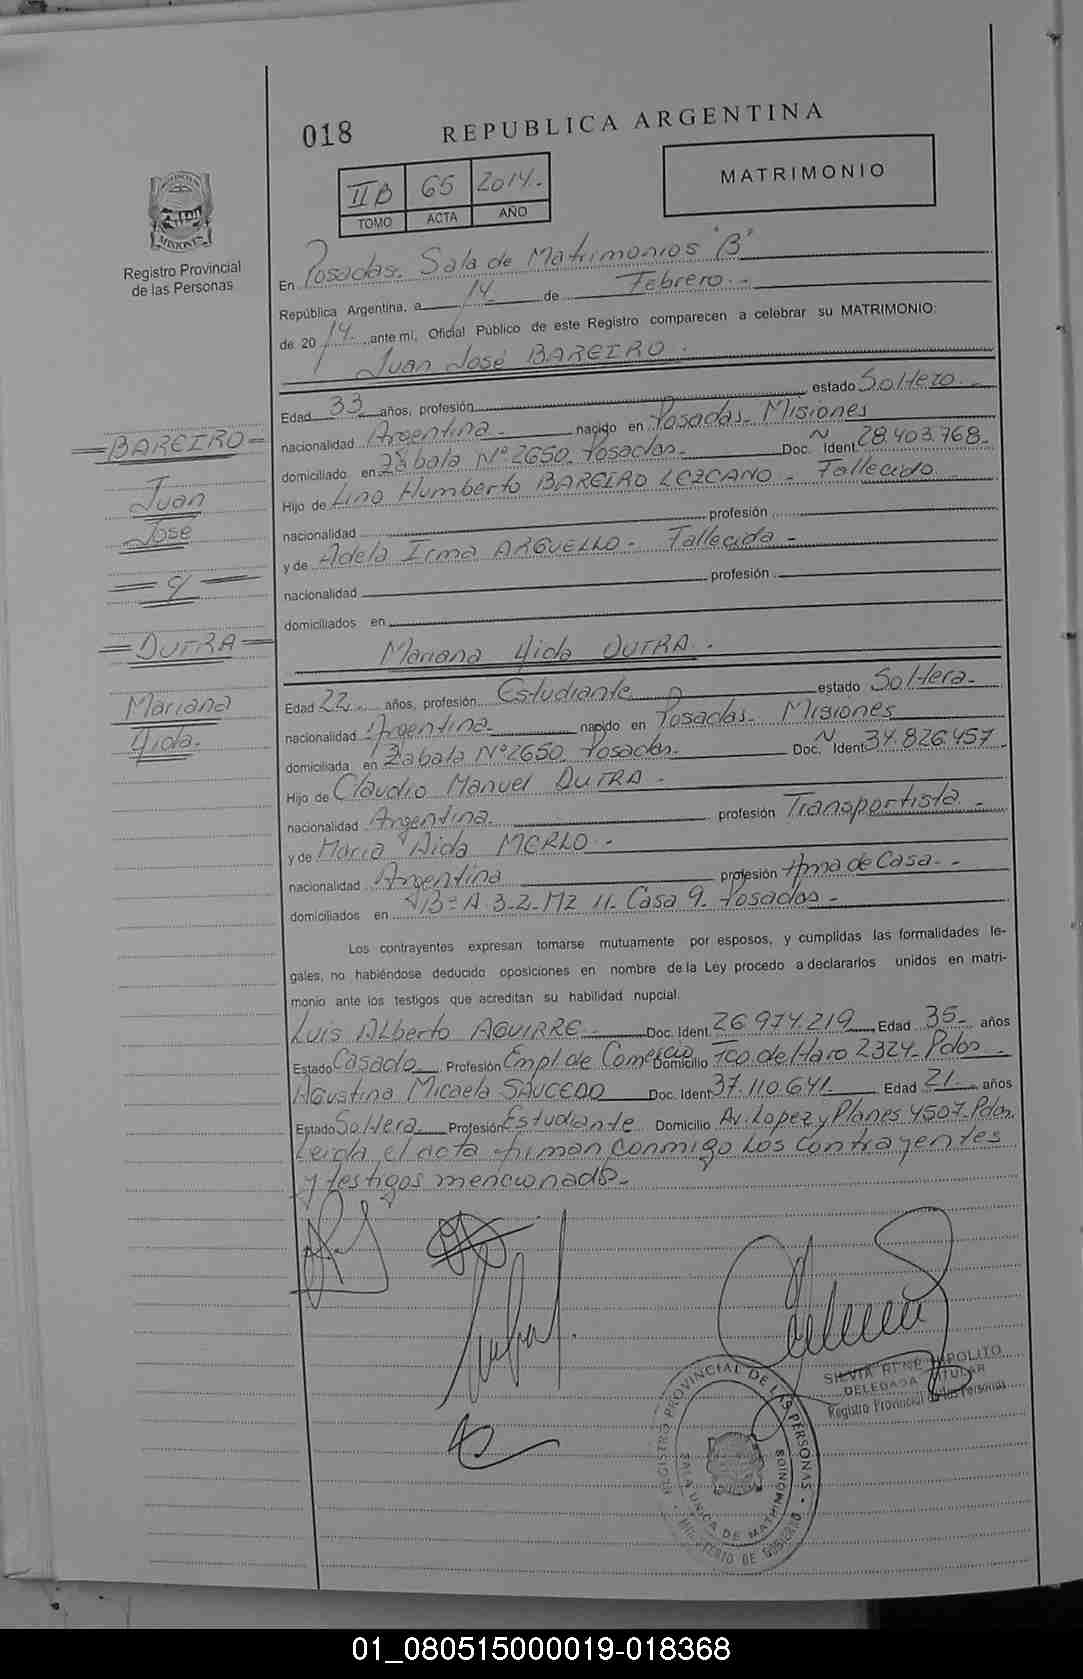 018
REPUBLICA ARGENTINA
II B 65 2014.-
TOMO ACTA AÑO
MATRIMONIO
Registro Provincial
de las Personas
En Posadas. Sala de Matrimonios "B"
República Argentina, a 14 de Febrero.-
de 20 14.- ante mi, Oficial Público de este Registro comparecen a celebrar su MATRIMONIO:
Juan José BAREIRO.
Edad 33 años, profesión estado Soltero.-
nacionalidad Argentina.- nacido en Posadas. Misiones
domiciliado en Zabala Nº 2650. Posadas.- Doc. N Ident. 28.403.768.-
Hijo de Lino Humberto BAREIRO LEZCANO - Fallecido
nacionalidad profesión
y de Adela Irma ARGUELLO - Fallecida -
nacionalidad profesión
domiciliados en
Mariana Aida DUTRA.
Edad 22.- años, profesión Estudiante estado Soltera.-
nacionalidad Argentina.- nacido en Posadas. Misiones
domiciliada en Zabala Nº 2650. Posadas.- Doc. N Ident 34.826.457
Hijo de Claudio Manuel DUTRA -
nacionalidad Argentina. profesión Transportista -
y de Maria Aida MERLO -
nacionalidad Argentina profesión Ama de Casa.-
domiciliados en Bº A 3-2- Mz 11. Casa 9. Posadas -
Los contrayentes expresan tomarse mutuamente por esposos, y cumplidas las formalidades le-
gales, no habiéndose deducido oposiciones en nombre de la Ley procedo a declararlos unidos en matri-
monio ante los testigos que acreditan su habilidad nupcial.
Luis Alberto AGUIRRE.- Doc. Ident. 26.974.219 Edad 35- años
Estado Casado Profesión Empl. de Comercio Domicilio Fco de Haro 2324- Pdas.-
Agustina Micaela SAUCEDO Doc. Ident 37.110.641.- Edad 21.- años
Estado Soltera. Profesión Estudiante Domicilio Av. Lopez y Planes 4507- Pdas.
Leida el acta firman conmigo los contrayentes
y testigos mencionado.-
=BAREIRO=
Juan
José
= c/ =
=DUTRA=
Mariana
Aida.
SILVIA RENE HIPOLITO
DELEGADA TITULAR
Registro Provincial de las Personas
REGISTRO PROVINCIAL DE LAS PERSONAS
SALA UNICA DE MATRIMONIOS
MINISTERIO DE GOBIERNO
01_080515000019-018368